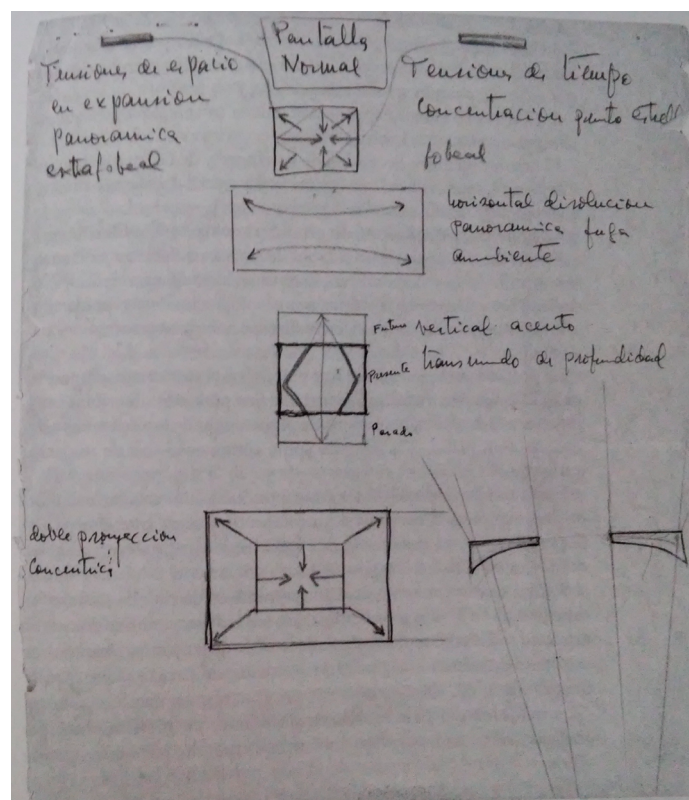 Pantalla
Normal
Tensiones de espacio
en expansion
panoramica
extrafobeal
Tensiones de tiempo
concentracion punto
fobeal
horizontal disolucion
panoramica fuga
ambiente
Futuro
vertical acento
Presente
transmundo de profundidad
Pasado
doble proyeccion
concentrica